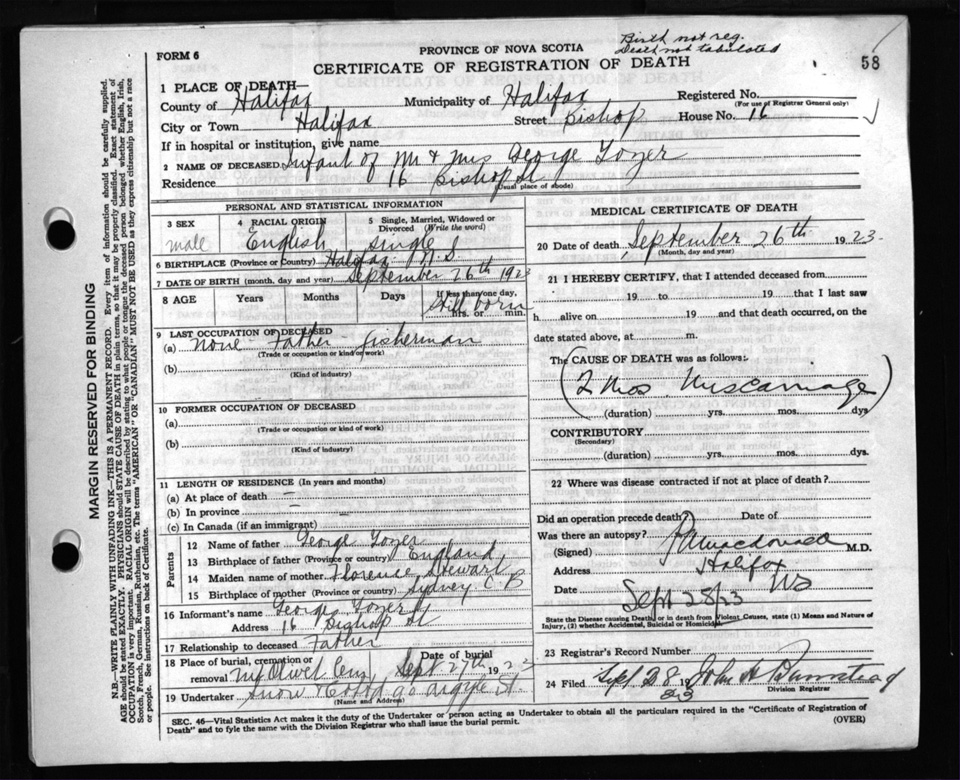 Birth not reg.
Death not tabulated
FORM 6
PROVINCE OF NOVA SCOTIA
CERTIFICATE OF REGISTRATION OF DEATH
58
1 PLACE OF DEATH—
County of Halifax Municipality of Halifax Registered No.
(For use of Registrar General only)
City or Town Halifax Street Bishop House No. 16
If in hospital or institution, give name
2 NAME OF DECEASED Infant of Mr & Mrs George Tozer
Residence 16 Bishop St
(Usual place of abode)
PERSONAL AND STATISTICAL INFORMATION
3 SEX 4 RACIAL ORIGIN 5 Single, Married, Widowed or Divorced (Write the word)
male English single
6 BIRTHPLACE (Province or Country) Halifax N.S.
7 DATE OF BIRTH (month, day and year) September 26th 1923
8 AGE Years Months Days If less than one day, hrs. or min.
Still born
9 LAST OCCUPATION OF DECEASED
(a) None - Father - fisherman
(Trade or occupation or kind of work)
(b)
(Kind of industry)
10 FORMER OCCUPATION OF DECEASED
(a)
(Trade or occupation or kind of work)
(b)
(Kind of industry)
11 LENGTH OF RESIDENCE (In years and months)
(a) At place of death —
(b) In province —
(c) In Canada (if an immigrant)
Parents
12 Name of father George Tozer
13 Birthplace of father (Province or country) England
14 Maiden name of mother Florence Stewart
15 Birthplace of mother (Province or country) Sydney C. B
16 Informant's name George Tozer
Address 16 Bishop St
17 Relationship to deceased Father
18 Place of burial, cremation or removal Mt Olivet Cem Date of burial Sept 27th 1923
19 Undertaker Snow & Co Ltd 90 Argyle St.
(Name and Address)
MEDICAL CERTIFICATE OF DEATH
20 Date of death, September 26th 1923.
(Month, day and year)
21 I HEREBY CERTIFY, that I attended deceased from
19 to 19 that I last saw
h alive on 19 and that death occurred, on
date stated above, at m.
The CAUSE OF DEATH was as follows:
(2 Mos Miscarriage)
(duration) yrs. mos. dys.
CONTRIBUTORY
(Secondary)
(duration) yrs. mos. dys.
22 Where was disease contracted if not at place of death?
Did an operation precede death? Date of
Was there an autopsy?
(Signed) Macdonald M.D.
Address Halifax
Date Sept 28/23 NS
State the Disease causing Death, or in death from Violent Causes, state (1) Means and Nature of Injury, (2) whether Accidental, Suicidal or Homicidal.
23 Registrar's Record Number
24 Filed Sept 28 1923 John A Bumstead
Division Registrar
SEC. 46—Vital Statistics Act makes it the duty of the Undertaker or person acting as Undertaker to obtain all the particulars required in the "Certificate of Registration of
Death" and to fyle the same with the Division Registrar who shall issue the burial permit.
(OVER)
MARGIN RESERVED FOR BINDING
N.B.—WRITE PLAINLY WITH UNFADING INK—THIS IS A PERMANENT RECORD. Every item of information should be carefully supplied.
AGE should be stated EXACTLY. PHYSICIANS should STATE CAUSE OF DEATH in plain terms, so that it may be properly classified. Exact statement of
OCCUPATION is very important. RACIAL ORIGIN will be described by stating to what people or tongue the deceased person belonged whether English, Irish,
Scotch, French, German, Russian, Ruthenian, etc. The terms "AMERICAN" OR "CANADIAN" MUST NOT BE USED as they express citizenship but not a race
or people. See instructions on back of Certificate.